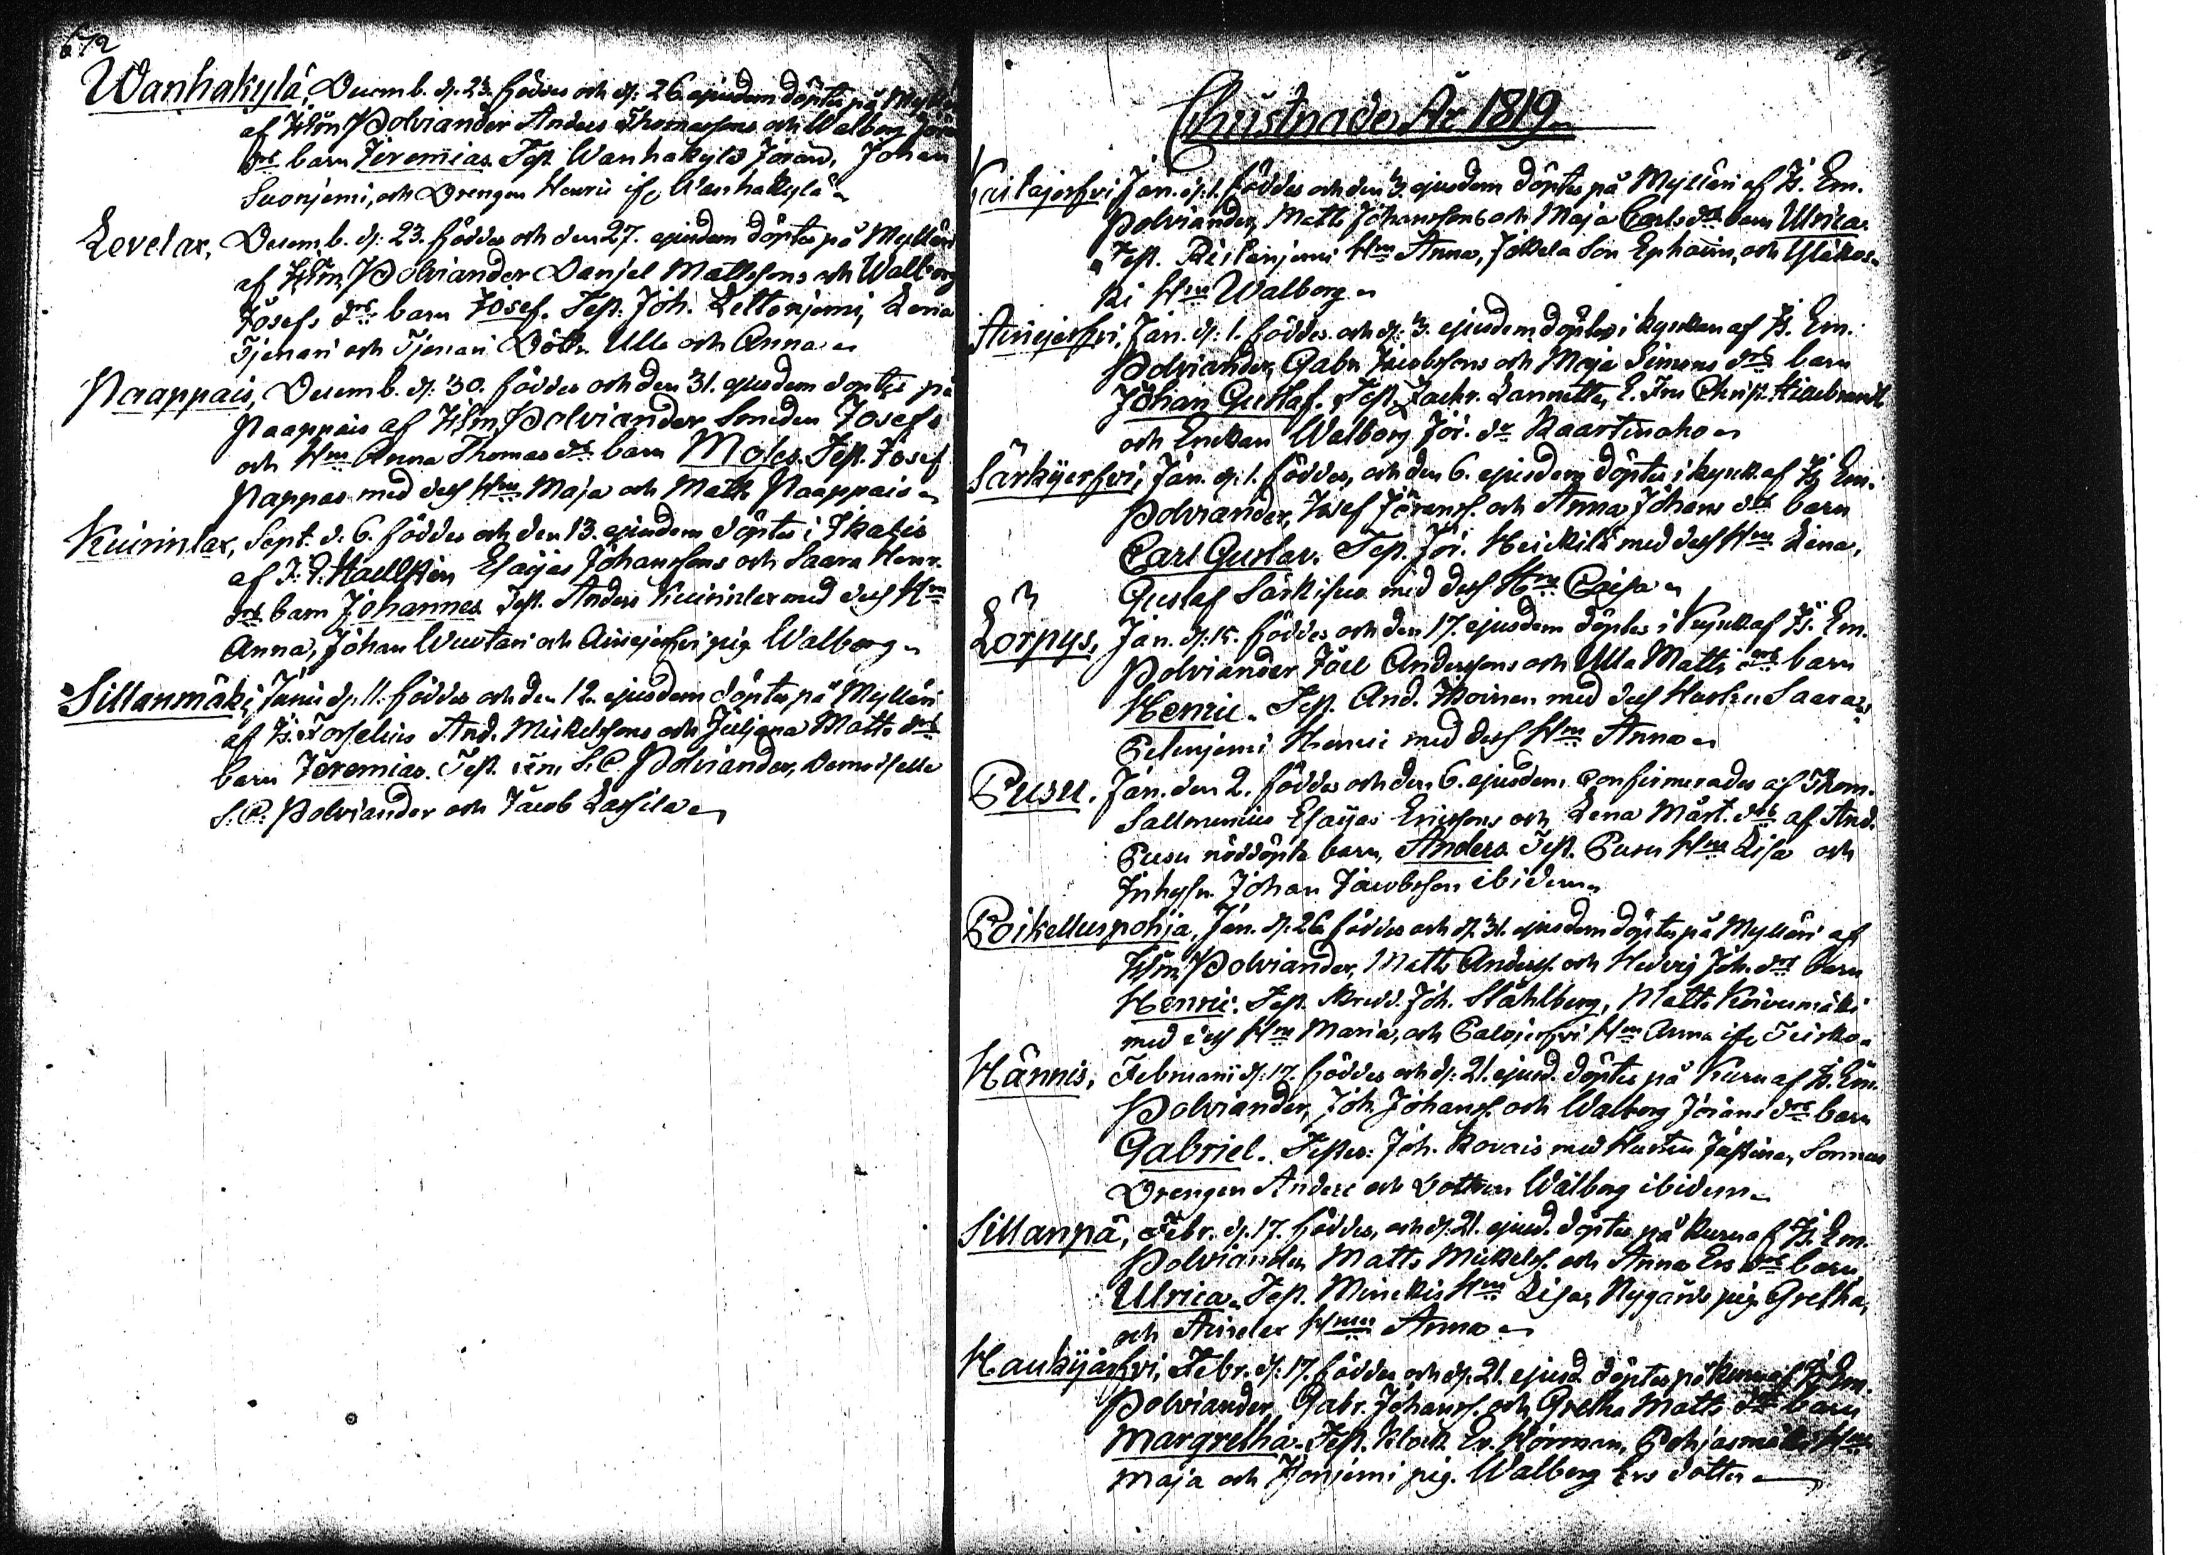 672
Wanhakylä, Decemb. d. 23. föddes och d: 26 ejusdem döptes på Mylläri
af Polviander Anders Thomassons och Walborg
drs barn Jeremias. Test. Wanhakylä Jöran, Johan
Suonjemi, och Drengen Henric if. Wanhakylä
Levelax, Decemb. d: 23. föddes och den 27. ejusdem döptes på Mylläri
af Polviander Danjel Mattssons och Walborg
Josefs drs barn Josef. Test. Joh. Lettonjemi, Lena
Tjenari och Tjenari Döttr. Ulla och Anna
Paappais, Decemb. d. 30. föddes och den 31. ejusdem döptes på
Paappais af Polviander Smeden Josefs
och Hm Anna Thomas drs barn Moses. Test. Josef
Pappas med dess Hru Maja och Matts Paappais
Kuirinlax, Sept. d. 6. föddes och den 13. ejusdem döptes i Ikalis
af J. P. Haellsten Esaijas Johanssons och Saara Henr.
drs barn Johannes. Test. Anders Kuirinlax med dess Hru
Anna, Johan Wuotari och pig. Walborg
Sillanmäki, Junii d. 11. föddes och den 12. ejusdem döptes på Mylläri
af Forselius And. Mickelssons och Juljana Matts drs
barn Jeremias. Test. S. C. Polviander, Demoiselle
S. C. Polviander och Jacob Lassila
Christnade År 1819
Jan. d. 1. föddes och den 3 ejusdem döptes på Mylläri af Em.
Polviander, Matts Johanssons och Maja Carls drs barn Ulrica
Test. Hru Anna, Jokela Son Ephaim, och
ki Hru Walborg
Jan. d: 1. föddes och d: 3. ejusdem döptes i kyrkan af Em.
Polviander, Gabr. Jacobssons och Maja Simons drs barn
Johan Gustaf. Test. Zachr. Lannetta, Christ.
och Enckan Walborg Jör. dr Kaartinaho
Särkijerfvi, Jan. d. 1. föddes, och den 6. ejusdem döptes i kyrk. af Em.
Polviander, Josef Jöranss. och Anna Johans drs barn
Carl Gustav. Test. Jör. Heickilä med dess Hru Lena,
Gustaf Särkisuo med dess Hru Caisa
Lörpys, Jan. d: 15. föddes och den 17. ejusdem döptes i Kyrk. af Em.
Polviander Joel Anderssons och Ulla Matts drs barn
Henric. Test. And. med dess Hustru Saara,
Henric med dess Hru Anna
Pusu. Jan. den 2. föddes och den 6. ejusdem Confirmerades af Thom.
Sallmenius Esaijas Ericssons och Lena Mårt. drs af And.
Pusu nöddöpte barn, Anders. Test. Pusu Hru Lisa och
Inhyses. Johan Jacobsson ibidem
Poikelluspohja, Jan. d. 26 föddes och d. 31. ejusdem döptes på Mylläri af
Polviander, Matts Anderss. och Hedvig Joh. drs barn
Henric. Test. Skredd. Joh. Ståhlberg, Matts Koivumäki
med dess Hru Maria, och Palojerfvi Hru Anna if. Teisko
Hännis, Februarii d: 17. föddes och d: 21. ejusd. döptes på Kuru af Em.
Polviander, Joh. Johanss. och Walborg Jörans drs barn
Gabriel. Testes: Joh. Kovais med Hustru Justina, Sonnens
Drengen Anders och Dottren Walborg ibidem
Sillanpä, Febr. d. 17. föddes, och d. 21. ejusd. döptes på Kuru af Em.
Polviander Matts Mickelss. och Anna Ers drs barn
Ulrica. Test. Minckis Hru Lisa, Nygårds pig. Gretha,
och Aurelax Hru Anna
Haukijärfvi, Febr. d: 17. föddes och d. 21. ejusd. döptes på Kuru af Em.
Polviander, Gabr. Johanss. och Gretha Matts drs barn
Margretha. Test. Klock. Er. Horman, Pohjasmäki Hru
Maja och pig. Walborg Ers dotter